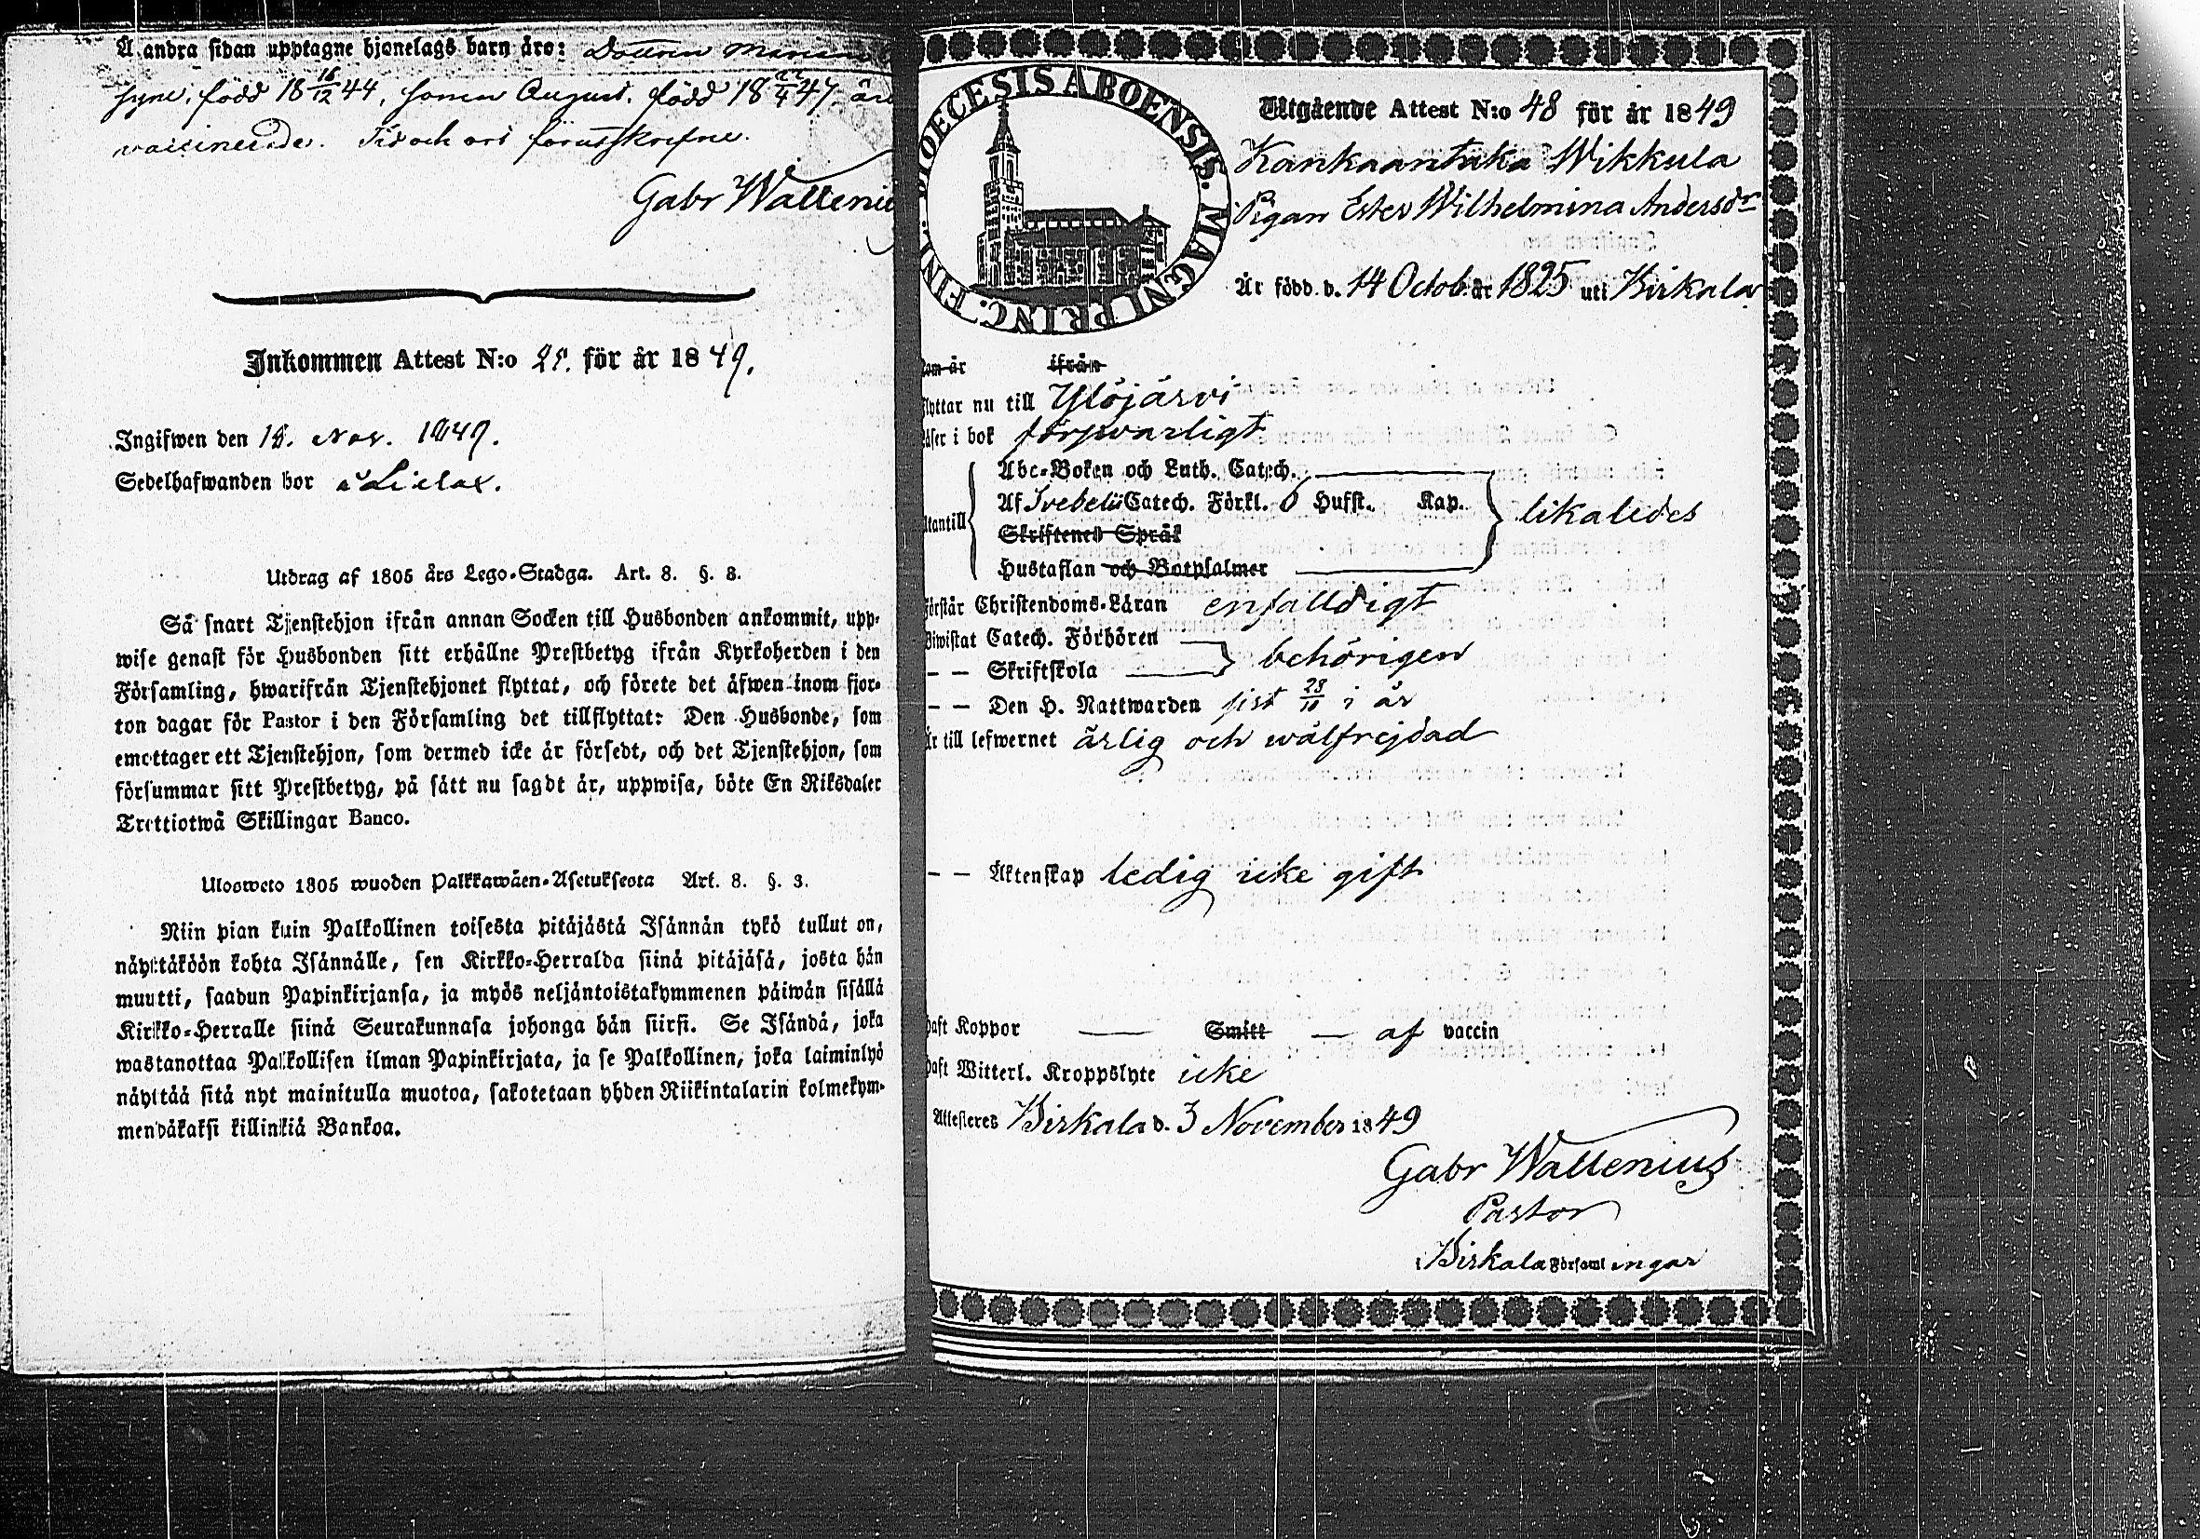 Å andra sidan upptagne hjonelags barn äro: Dottren Maria
född 18 16/12 44, sonen August, född 18 22/4 47, äro
vaccinerade. Tid och ort förutskrefne.
Gabr Wallenius
Inkommen Attest N:o 25. för år 1849.
Ingifwen den 18. Nov. 1849.
Sedelhafwanden bor i Lielax.
Utdrag af 1805 års Lego-Stadga. Art. 8. §. 8.
Så snart Tjenstehjon ifrån annan Socken till Husbonden ankommit, upp-
wise genast för Husbonden sitt erhållne Prestbetyg ifrån Kyrkoherden i den
Församling, hwarifrån Tjenstehjonet flyttat, och förete det äfwen inom fjor-
ton dagar för Pastor i den Församling det tillflyttat: Den Husbonde, som
emottager ett Tjenstehjon, som dermed icke är försedt, och det Tjenstehjon, som
försummar sitt Prestbetyg, på sätt nu sagdt är, uppwisa, böte En Riksdaler
Trettiotwå Skillingar Banco.
Ulosweto 1805 wuoden Palkkawäen-Asetuksesta Art. 8. §. 3.
Niin pian kuin Palkollinen toisesta pitäjästä Isännän tykö tullut on,
näyttäköön kohta Isännälle, sen Kirkko-Herralda siinä pitäjäsä, josta hän
muutti, saadun Papinkirjansa, ja myös neljäntoistakymmenen päiwän sisällä
Kirkko-Herralle siinä Seurakunnasa johonga hän siirsi. Se Isändä, joka
wastanottaa Palkollisen ilman Papinkirjata, ja se Palkollinen, joka laiminlyö
näyttää sitä nyt mainitulla muotoa, sakotetaan yhden Riikintalarin kolmekym-
mendäkaksi killinkiä Bankoa.
DIOECESIS ABOENSIS. MAGNI PRINC. FINL.
Utgående Attest N:o 48 för år 1849
Kankaantaka Wikkula
Pigan Ester Wilhelmina Andersdr
Är född d. 14 Octob. år 1825 uti Birkala
Kom år ifrån
flyttar nu till Ylöjärvi
Läser i bok försvarligt
Abc-Boken och Luth. Catech.
Utantill Af Svebelii Catech. Förkl. 6 Hufst. Kap. likaledes
Skriftenes Språk
Hustaflan och Botpsalmer
Förstår Christendoms-Läran enfalldigt
Biwistat Catech. Förhören
— — Skriftskola behörigen
— — Den H. Nattwarden sist 28/10 i år
Är till lefwernet ärlig och wälfrejdad
— — Äktenskap ledig icke gift
haft Koppor — Smitt — af vaccin
haft Witterl. Kroppslyte icke
Attesteres Birkala d. 3 November 1849
Gabr Wallenius
Pastor
i Birkala Församlingar